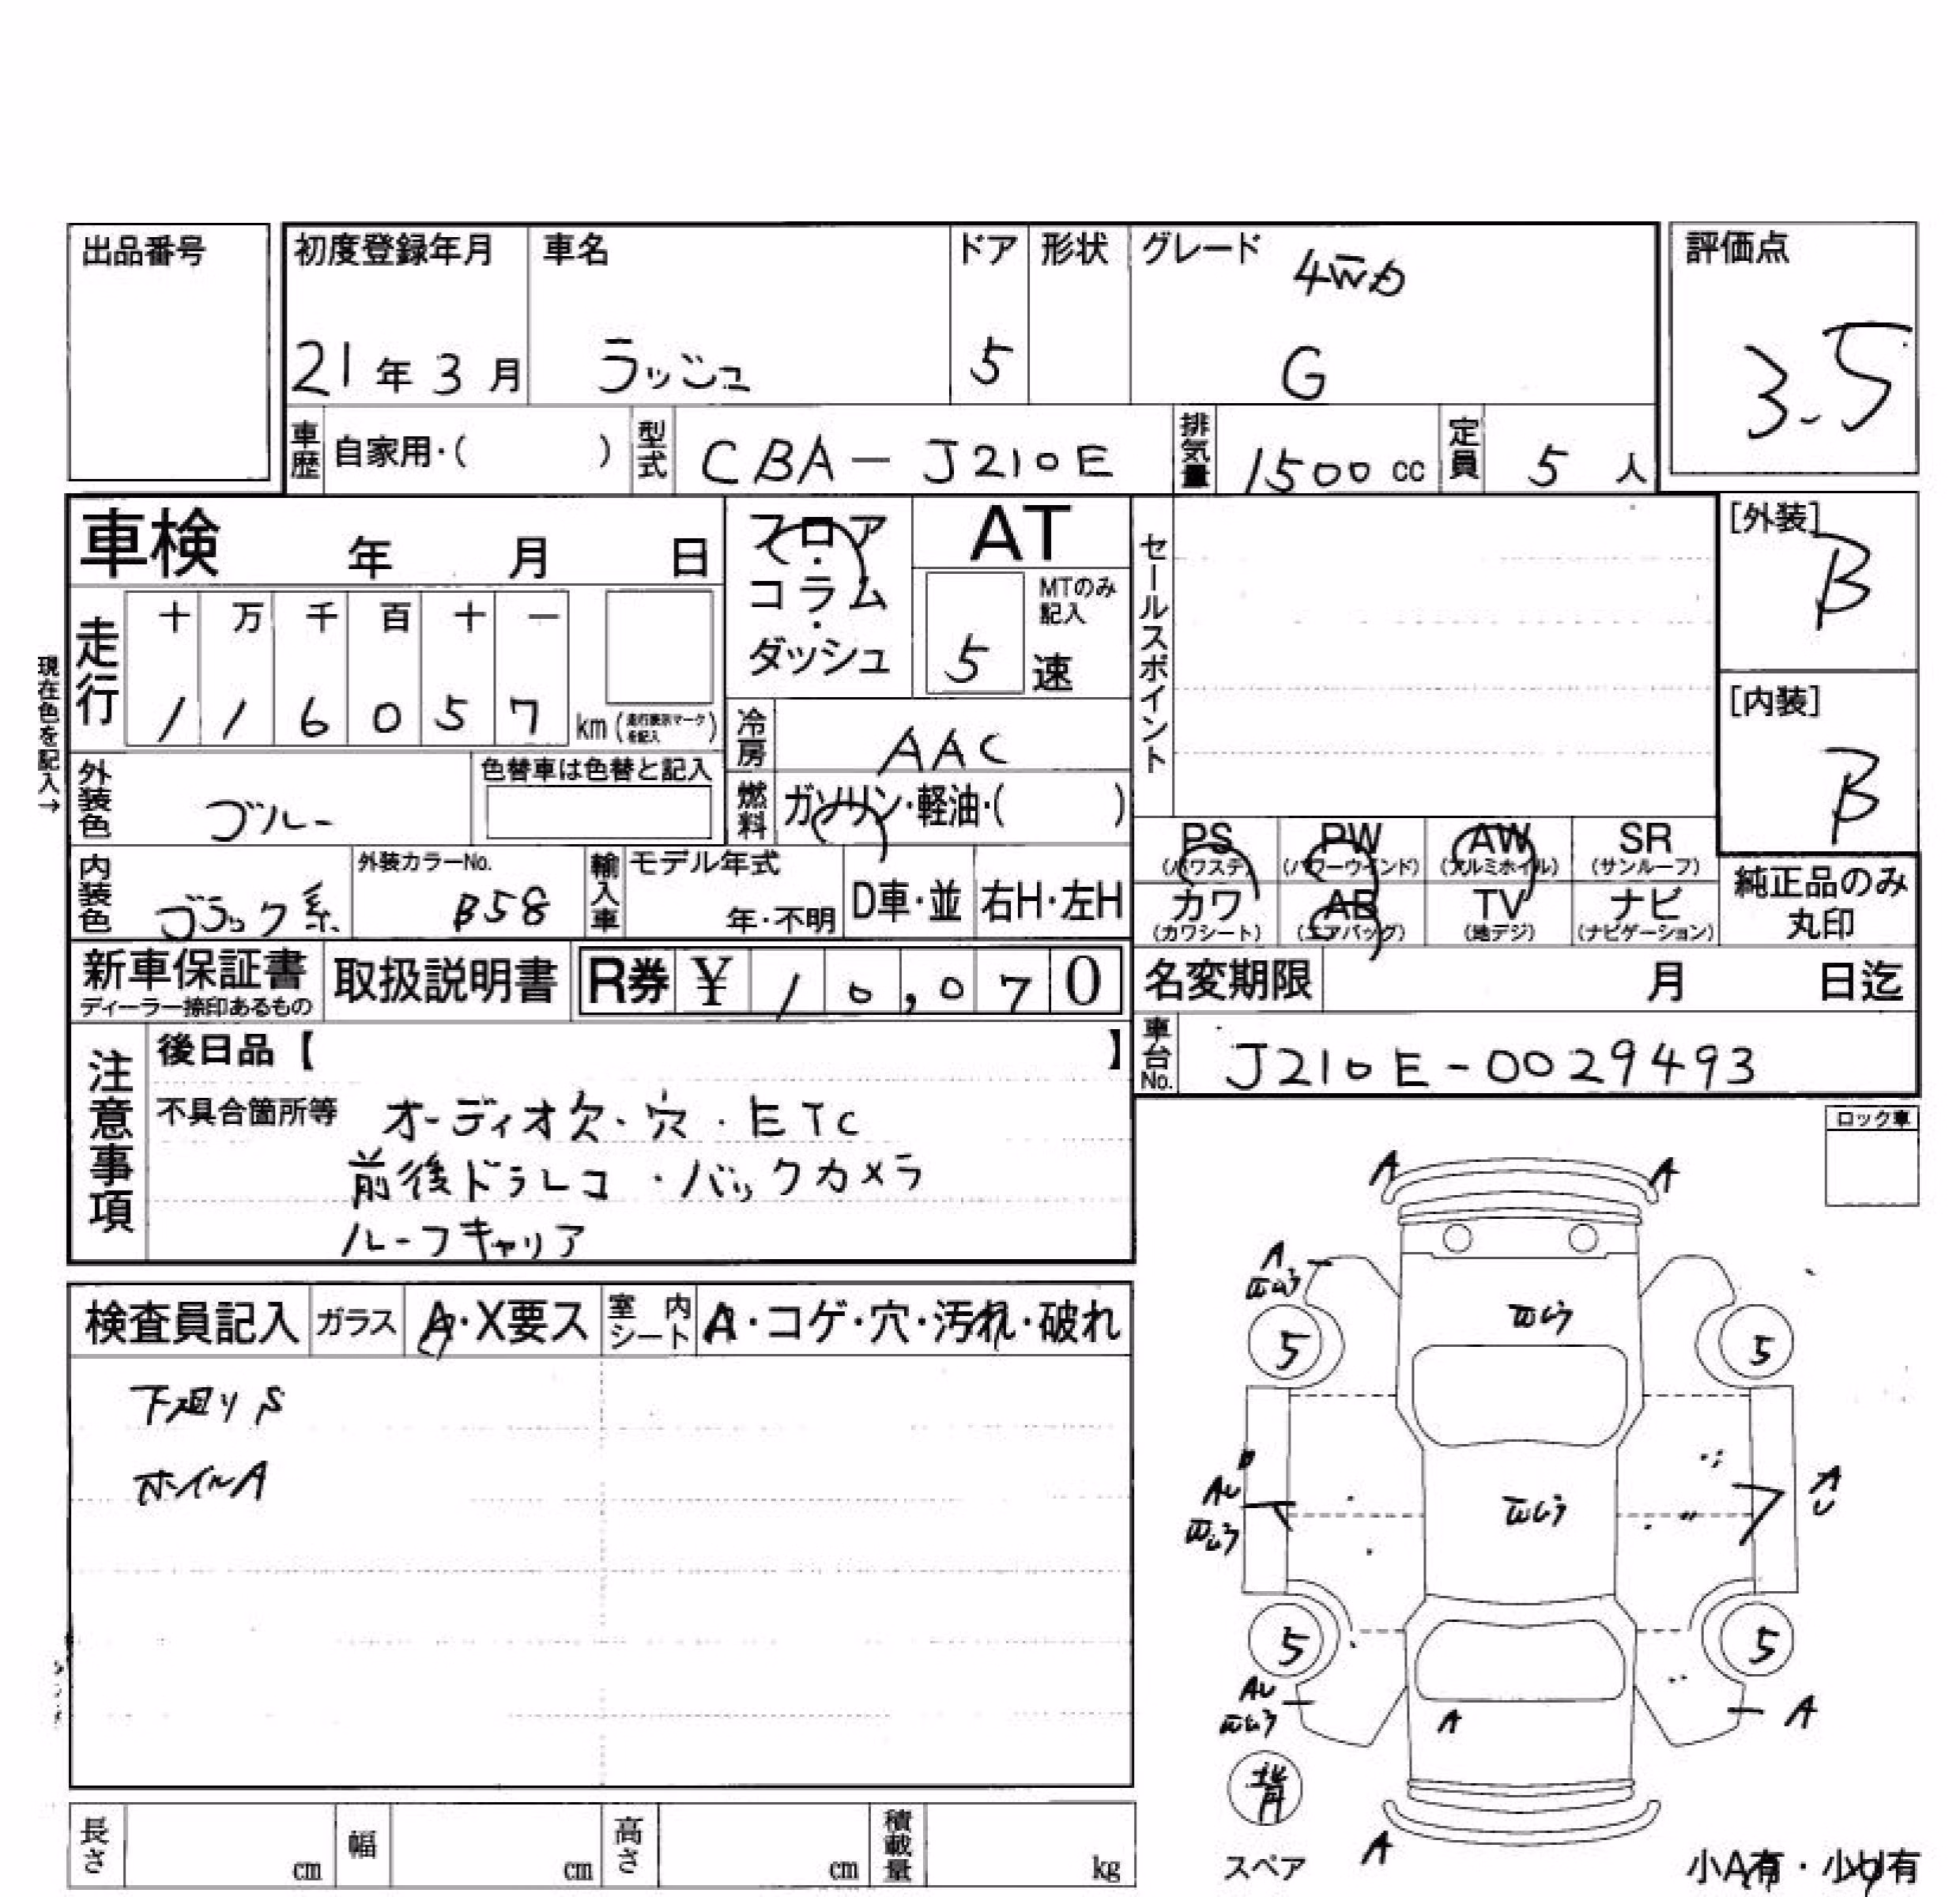 出品番号
初度登録年月 車名 ドア 形状 グレード 4WD
評価点
21年3月 ラッシュ 5 G
3.5
車歴 自家用・( ) 型式 CBA-J210E 排気量 1500cc 定員 5人
車検 年 月 日
フロア・コラム・ダッシュ
AT
MTのみ記入
5速
セールスポイント
[外装]
B
[内装]
B
現在色を記入→
走行 十 万 千 百 十 一
1 1 6 0 5 7 km (走行表示マークを記入)
冷房 AAC
外装色 ブルー
色替車は色替と記入
燃料 ガソリン・軽油・( )
PS (パワステ) PW (パワーウインド) AW (アルミホイル) SR (サンルーフ)
カワ (カワシート) AB (エアバッグ) TV (地デジ) ナビ (ナビゲーション)
純正品のみ
丸印
内装色 ブラック系 外装カラーNo. B58 輸入車 モデル年式 年・不明 D車・並 右H・左H
新車保証書
ディーラー捺印あるもの
取扱説明書 R券 ¥10,070
名変期限 月 日迄
車台No. J210E-0029493
注意事項
後日品【 】
不具合箇所等 オーディオ欠・穴・ETC
前後ドラレコ・バックカメラ
ルーフキャリア
ロック車
検査員記入 ガラス A・X要ス 室内シート A・コゲ・穴・汚れ・破れ
下廻りS
ホイルA
A A
A
5 5
AU
AU
5 5
AU
A A
背
スペア
A
小A有・小U有
長さ cm 幅 cm 高さ cm 積載量 kg